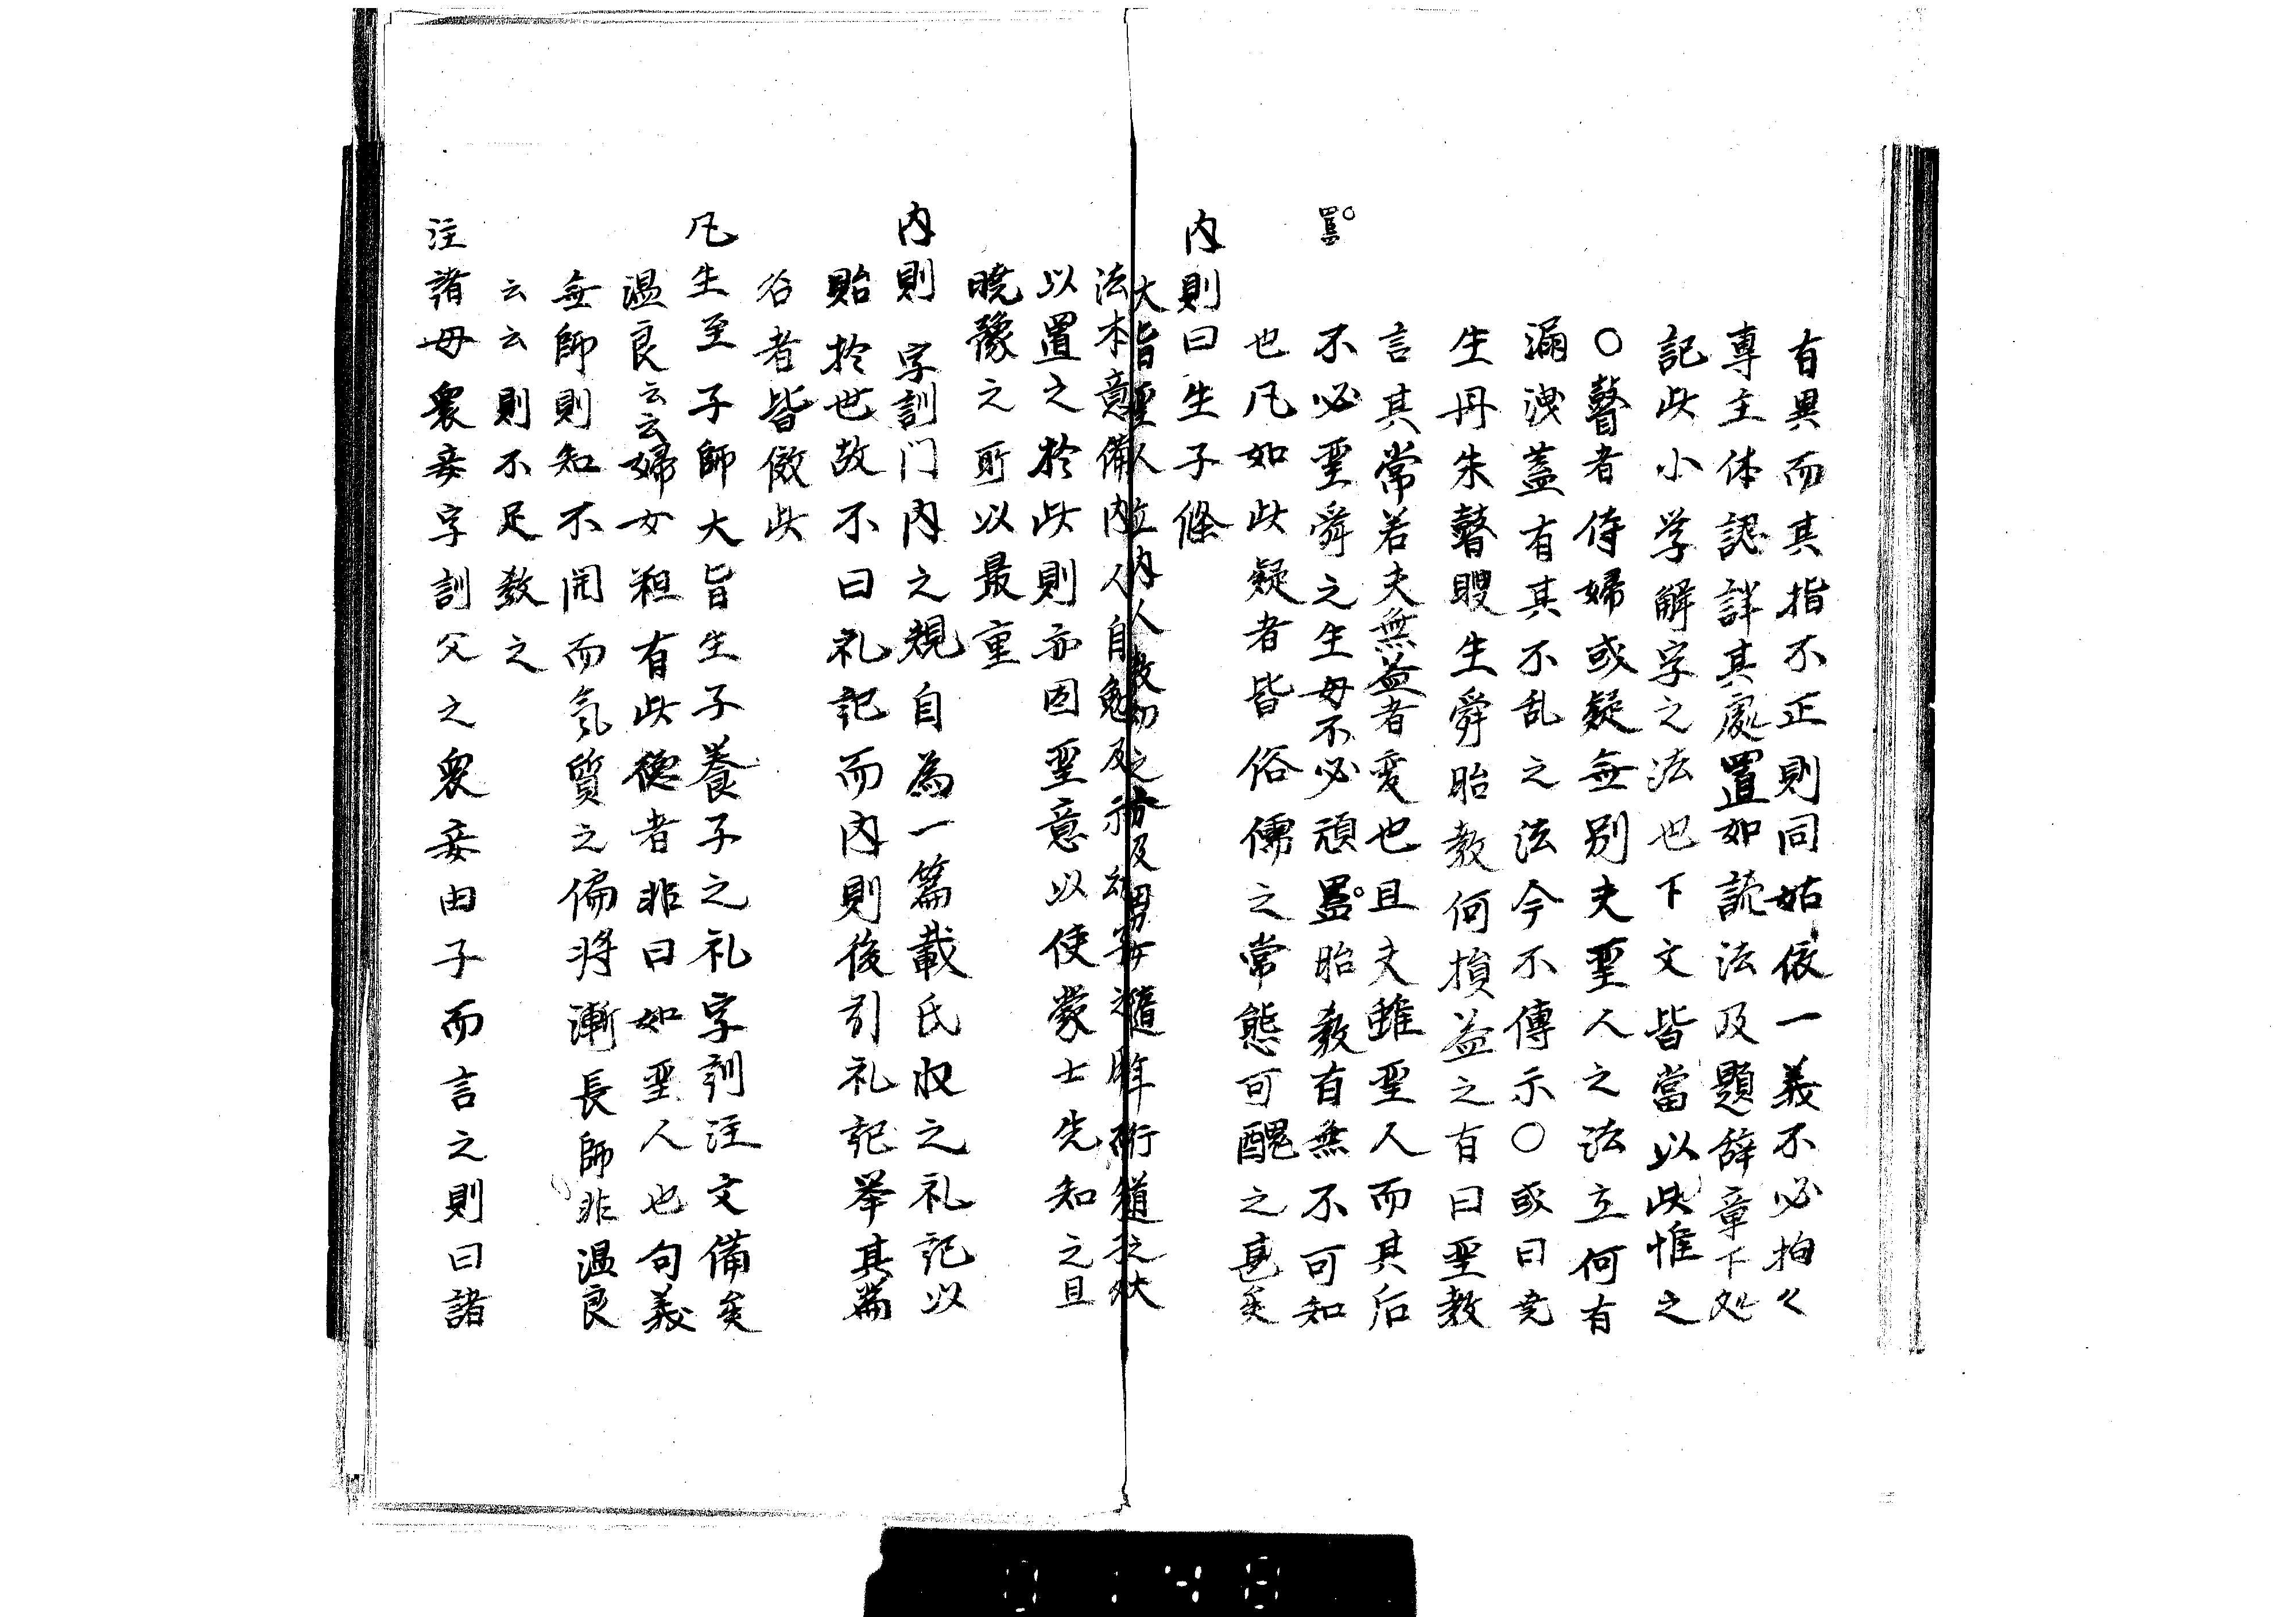 有異而其指不正則同姑依一義不必拘々
專主体認詳其處置如読法及題辞章下処
記此小学解字之法也下文皆當以此惟之
○瞽者侍婦或疑無別夫聖人之法立何有
漏洩蓋有其不乱之法今不傳示○或曰堯
生丹朱瞽瞍生舜胎教何損益之有曰聖教
言其常若夫無益者変也且文雖聖人而其后
不必聖舜之生母不必頑嚚胎教有無不可知
嚚
也凡如此疑者皆俗儒之常態可醜之甚矣
内則曰生子條
大旨聖人立内人教幼之
法本意備内人自勉及
以置之於此則亦因聖意以使蒙士先知之且
曉豫之所以最重
内則字訓门内之規自為一篇載氏収之礼記以
貽於世故不曰礼記而内則後引礼記举其篇
名者皆倣此
凡生至子師大旨生子養子之礼字訓注文備矣
温良云云婦女粗有此徳者非曰如聖人也句義
無師則知不開而氣質之偏将漸長師非温良
云云則不足教之
注諸母衆妾字訓父之衆妾由子而言之則曰諸